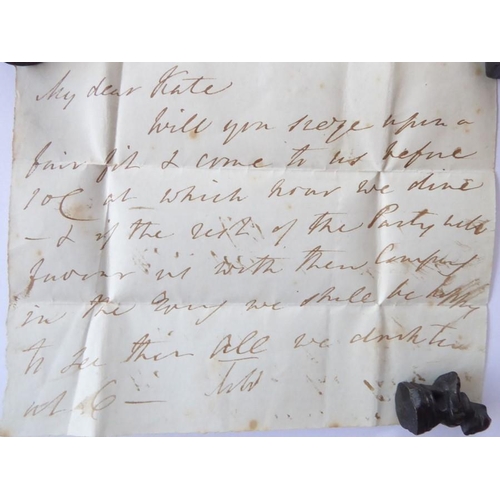 My dear Kate
Will you seize upon a
fair fit & come to us before
at which hour we dine
- & if the rest of the Party will
favour us with their Company
in the we shall be happy
to see them all we drink tea
at 6 -